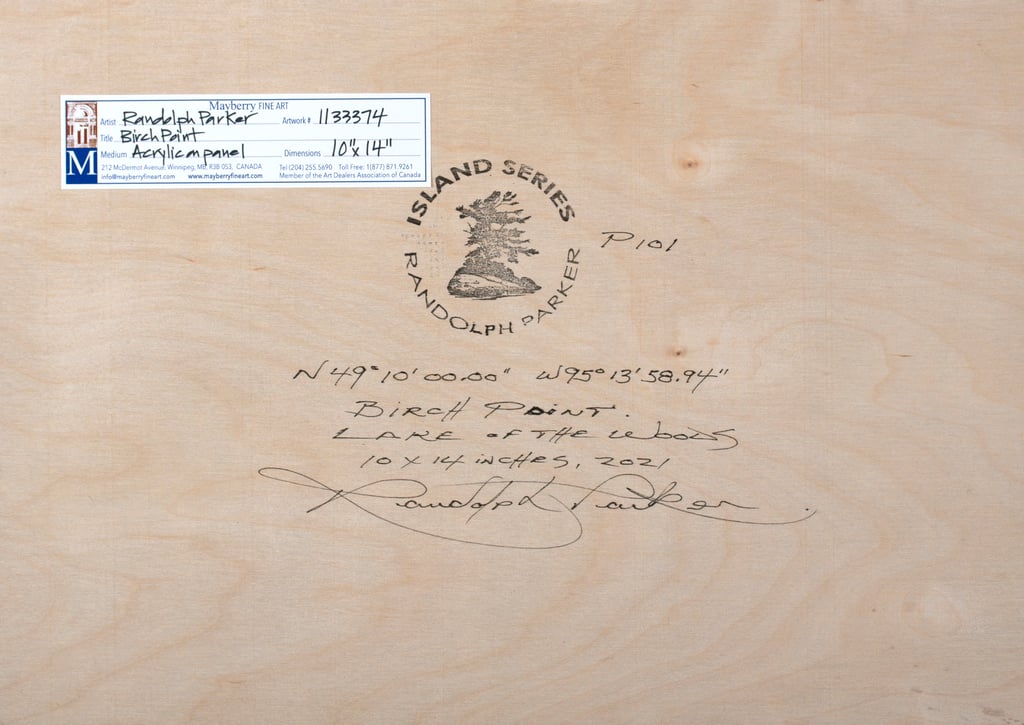 Mayberry FINE ART
Artist Randolph Parker Artwork # 1133374
Title Birch Point
Medium Acrylic on panel Dimensions 10" x 14"
M
212 McDermot Avenue, Winnipeg, MB, R3B 0S3, CANADA Tel (204) 255.5690 Toll Free: 1(877) 871.9261
info@mayberryfineart.com www.mayberryfineart.com Member of the Art Dealers Association of Canada
ISLAND SERIES
RANDOLPH PARKER
P101
N 49° 10' 00.00" W 95° 13' 58.94"
BIRCH POINT.
LAKE OF THE WOODS
10 X 14 INCHES, 2021
Randolph Parker